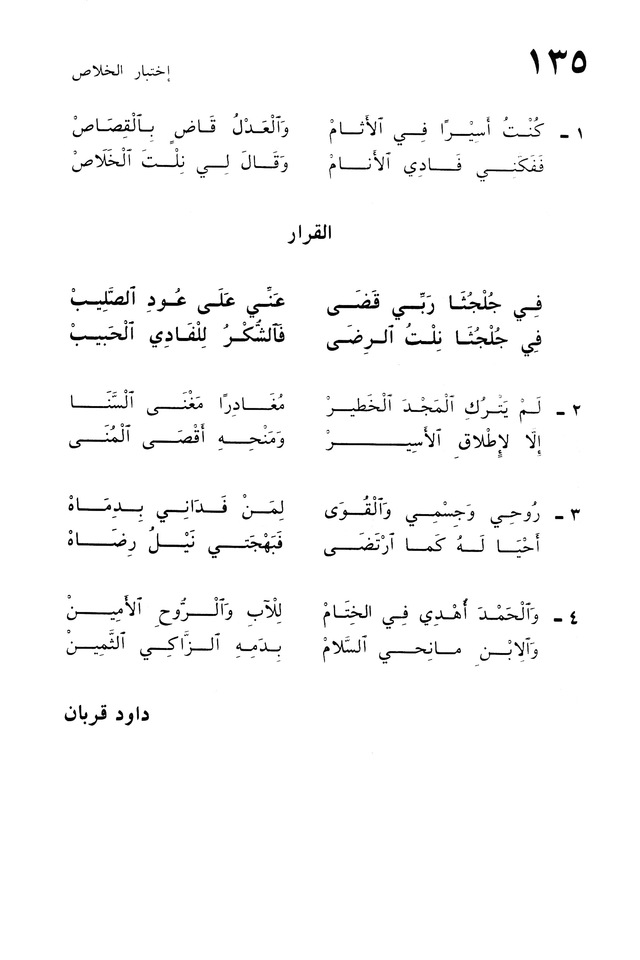 ١٣٥
إختبار الخلاص
١ ـ كُنْتُ أَسِيْرًا فِي ٱلأَثَامْ وَٱلْعَدْلُ قَاضٍ بِٱلْقِصَاصْ
فَفَكَنِي فَادِي ٱلأَنَامْ وَقَالَ لِي نِلْتَ ٱلْخَلَاصْ
القرار
فِي جُلْجُثَا رَبِّي قَضَى عَنِّي عَلَى عُودِ ٱلصَّلِيبْ
فِي جُلْجُثَا نِلْتُ ٱلرِضَى فَٱلشُّكْرُ لِلْفَادِي ٱلْحَبِيبْ
٢ ـ لَمْ يَتْرُكِ ٱلْمَجْدَ ٱلْخَطِيرْ مُغَادِرًا مَغْنَى ٱلسَّنَا
إِلَّا لِإِطْلَاقِ ٱلأَسِيرْ وَمَنْحِهِ أَقْصَى ٱلْمُنَى
٣ ـ رُوحِي وَجِسْمِي وَٱلْقُوَى لِمَنْ فَدَانِي بِدِمَاهْ
أَحْيَا لَهُ كَمَا ٱرْتَضَى فَبَهْجَتِي نَيْلُ رِضَاهْ
٤ ـ وَٱلْحَمْدَ أُهْدِي فِي الخِتَامْ لِلْآبِ وَٱلْرُّوحِ ٱلأَمِينْ
وَٱلِابْنِ مانِحِي ٱلسَّلامْ بِدَمِهِ ٱلزَّاكِي ٱلثَّمِينْ
داود قربان